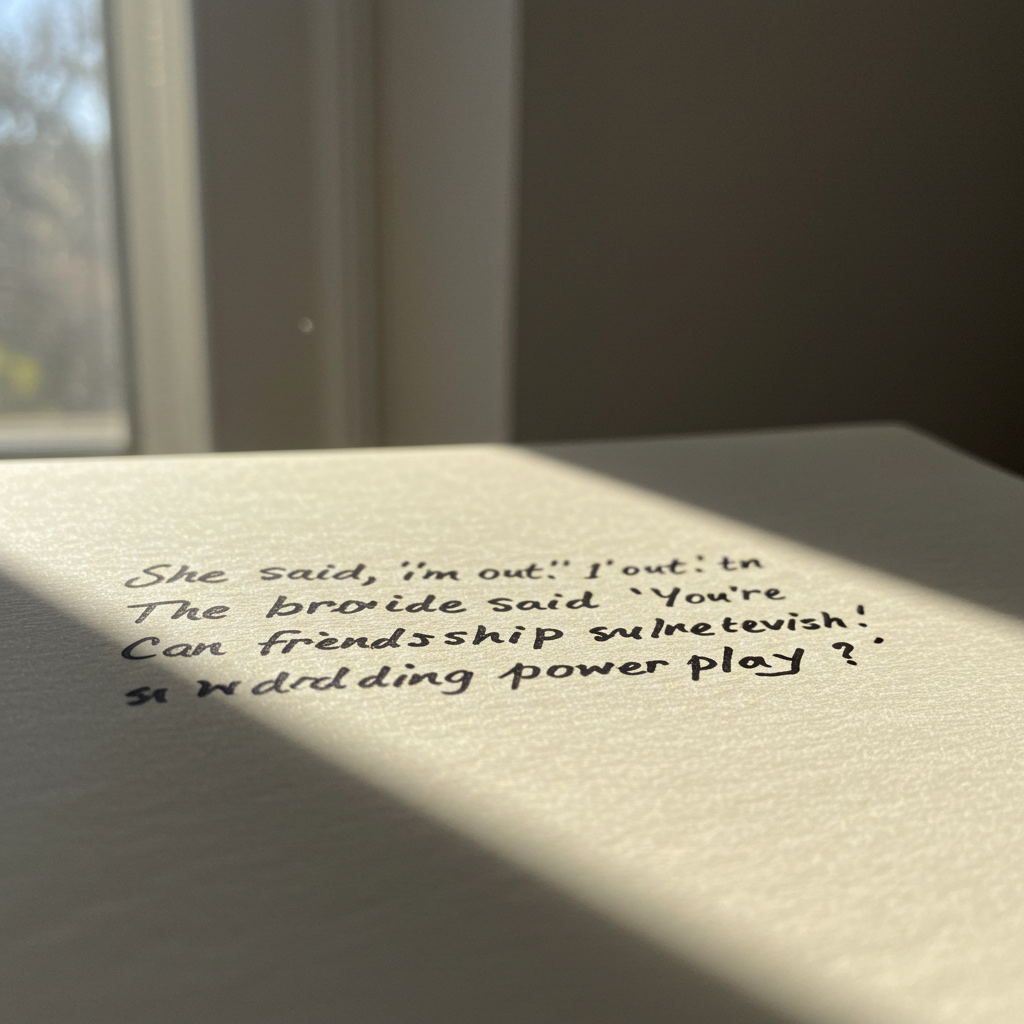 She said, "i'm out." I' out: tn
The broide said 'You're
Can friendsship
ding power play ?